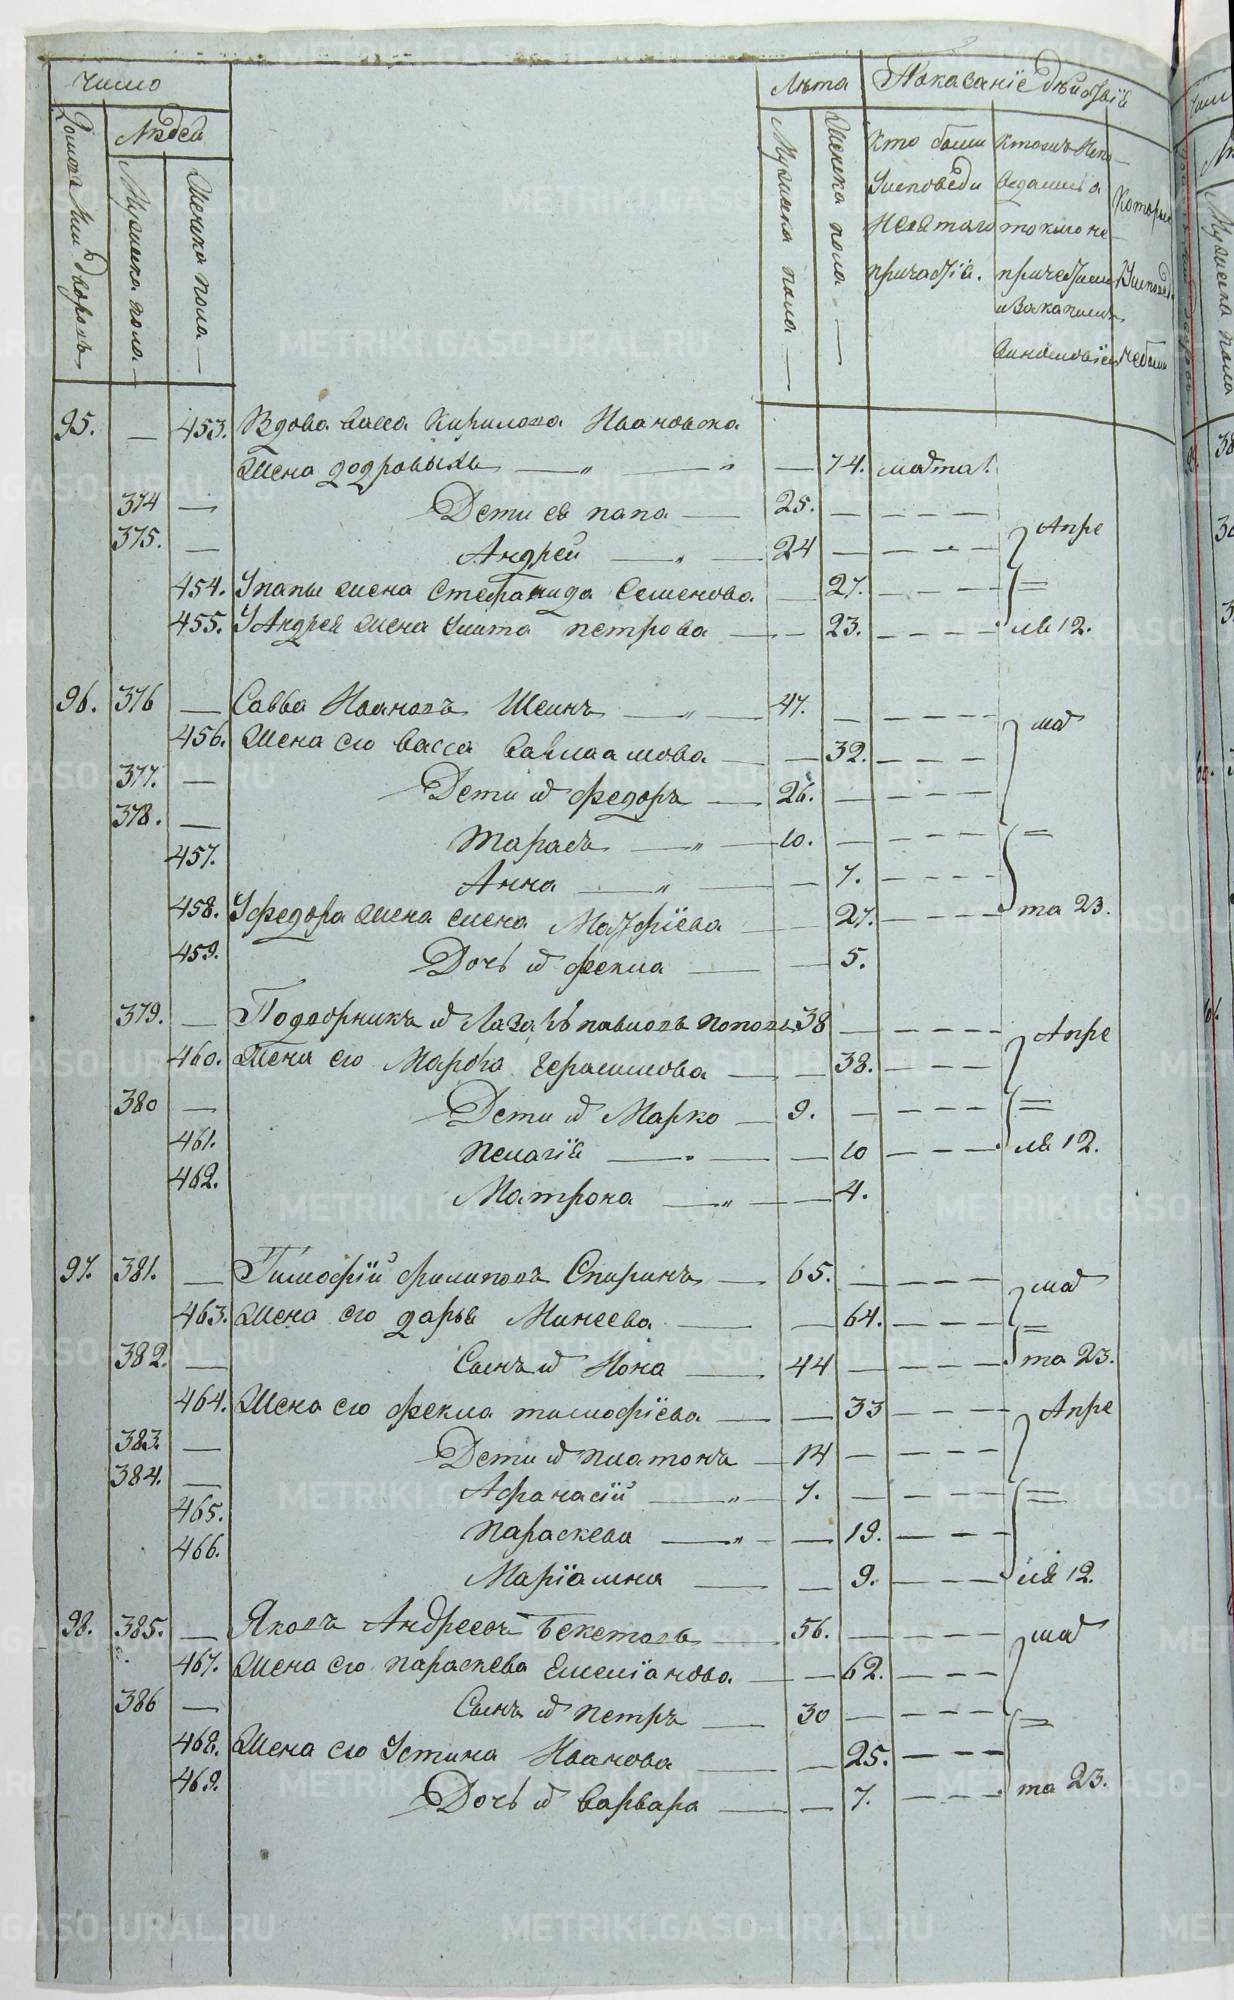 Число
Лѣта
Показанїе дѣйствїя
Домовъ или дворовъ
Людей
Мужеска пола
Женска пола
Мужеска пола
Женска пола
Кто были
у исповеди
и святаго
причастїя.
кто исповедались а
токмо не
причастились
и за каким
винословїем
которые
у исповеди
не были
95. — 453. Вдова васса Кирилова Ивановска
жена додровыхъ — „ — „ — 74. марта 1.
374 — Дети ея папа — 25. — — — —
375. — Андрей — „ — 24 — — — — Апре
454. У папы жена Стефанида Семенова — 27. — — —
455. У Андрея жена Улита петрова — — 23. — — — ля 12.
96. 376 — Савва Ивановъ Шеинъ — „ — 47. — — — — мар
456. Жена его васса варлаамова — — 32. — — —
377. — Дети их федоръ — 26. — — — —
378. — Тарасъ — „ — 10. — — — —
457. Анна — „ — — 7. — — —
458. У федора жена елена Матфїева — — 27. — — — та 23.
459. Дочь их фекла — — 5.
379. — Подворник их Лазарь павловъ поповъ 38 — — — — Апре
460. Жена его Марфа Герасимова — — 38. — — —
380 — Дети их Марко — 9. — — — —
461. пелагїя — „ — — 10 — — — ля 12.
462. Матрона — „ — — 4.
97. 381. — Тимофїй филиповъ Спиринъ — 65. — — — — мар
463. Жена его дарья Минеева — — 64. — — —
382. — Сынъ их Иона — 44 — — — — та 23.
464. Жена его фекла тимофїева — — 33 — — — Апре
383. — Дети их платонъ — 14 — — — —
384. — Афанасїй — „ — 7. — — — —
465. параскева — „ — — 19. — — —
466. Марїамна — — 9. — — — ля 12.
98. 385. — Яковъ Андреевъ Бекетовъ — 56. — — — — мар
467. Жена его параскева Емелїанова — — 62. — — —
386 — Сынъ их петръ — 30 — — — —
468. Жена его Устина Иванова — — 25. — — —
469. Дочь их варвара — — 7. — — — та 23.